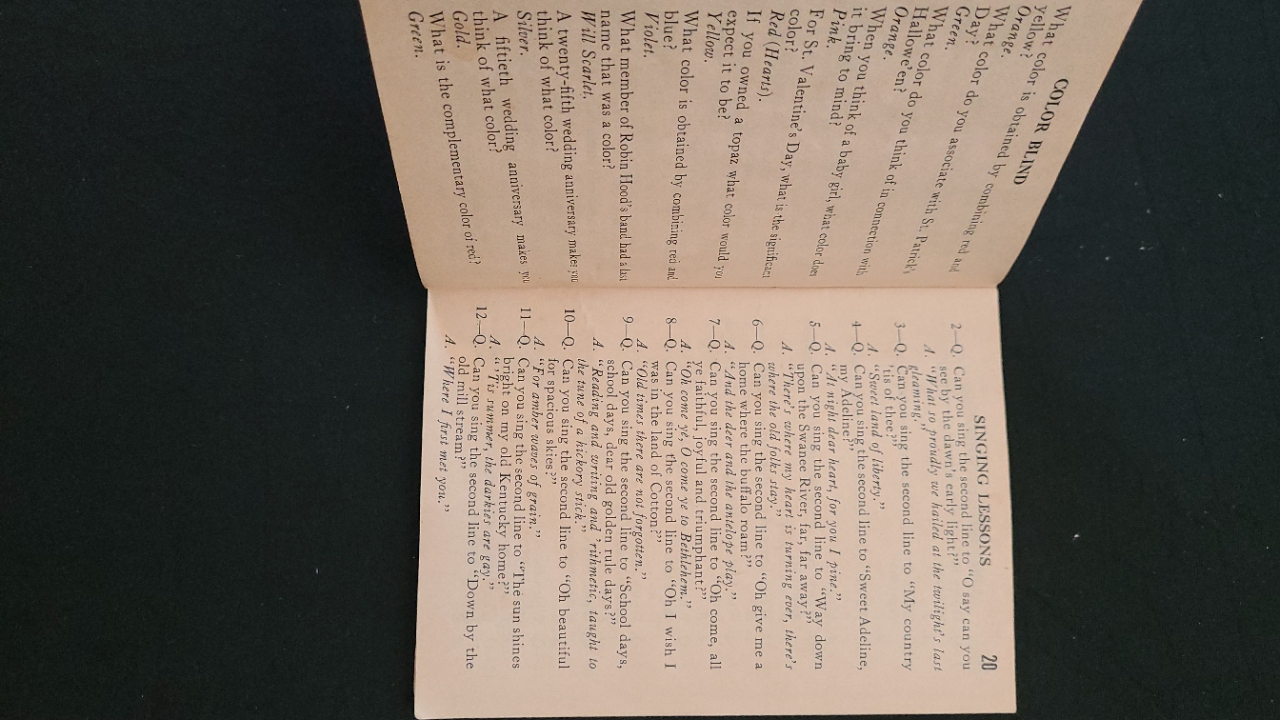 COLOR BLIND
What color is obtained by combining red and
yellow?
Orange.
What color do you associate with St. Patrick's
Day?
Green.
What color do you think of in connection with
Hallowe'en?
Orange.
When you think of a baby girl, what color does
it bring to mind?
Pink.
For St. Valentine's Day, what is the significant
color?
Red (Hearts).
If you owned a topaz what color would you
expect it to be?
Yellow.
What color is obtained by combining red and
blue?
Violet.
What member of Robin Hood's band had a last
name that was a color?
Will Scarlet.
A twenty-fifth wedding anniversary makes you
think of what color?
Silver.
A fiftieth wedding anniversary makes you
think of what color?
Gold.
What is the complementary color of red?
Green.
SINGING LESSONS 20
2—Q. Can you sing the second line to "O say can you
see by the dawn's early light?"
A. "What so proudly we hailed at the twilight's last
gleaming."
3—Q. Can you sing the second line to "My country
'tis of thee?"
A. "Sweet land of liberty."
4—Q. Can you sing the second line to "Sweet Adeline,
my Adeline?"
A. "At night dear heart, for you I pine."
5—Q. Can you sing the second line to "Way down
upon the Swanee River, far, far away?"
A. "There's where my heart is turning ever, there's
where the old folks stay."
6—Q. Can you sing the second line to "Oh give me a
home where the buffalo roam?"
A. "And the deer and the antelope play."
7—Q. Can you sing the second line to "Oh come, all
ye faithful, joyful and triumphant?"
A. "Oh come ye, O come ye to Bethlehem."
8—Q. Can you sing the second line to "Oh I wish I
was in the land of Cotton?"
A. "Old times there are not forgotten."
9—Q. Can you sing the second line to "School days,
school days, dear old golden rule days?"
A. "Reading and writing and 'rithmetic, taught to
the tune of a hickory stick."
10—Q. Can you sing the second line to "Oh beautiful
for spacious skies?"
A. "For amber waves of grain."
11—Q. Can you sing the second line to "The sun shines
bright on my old Kentucky home?"
A. "'Tis summer, the darkies are gay."
12—Q. Can you sing the second line to "Down by the
old mill stream?"
A. "Where I first met you."